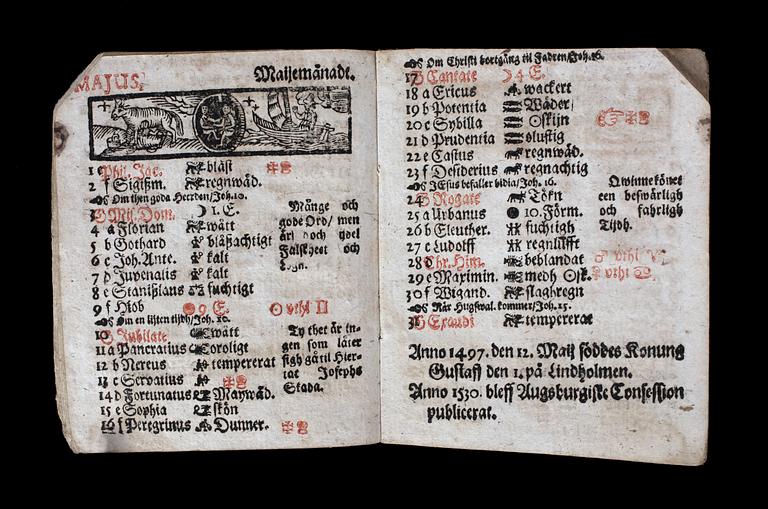 MAJUS,
Maijemånadt.
1 e Phil. Jac. blåst
2 f Sigißm. regnwäd.
Om then goda Heerden/Joh. 10.
3 G Mis. Dom. 1. E.
4 a Florian wått
5 b Gothard blåßachtigt
6 c Joh. Ante. kalt
7 d Juvenalis kalt
8 e Stanißlaus fuchtigt
9 f Hiob 9 E.
Om en lijten tijdh/Joh. 16.
10 G Jubilate wått
11 a Pancratius oroligt
12 b Nereus tempererat
13 c Servatius
14 d Fortunatus Maywäd.
15 e Sophia skön
16 f Peregrinus Dunner.
Månge och
gode Ord/ men
Falskhest och
Ty thet är in-
gen som låter
sigh gå til Hier-
tat Josephs
Skada.
Om Christi bortgång til Fadren/Joh. 16.
17 G Cantate 4 E.
18 a Ericus wackert
19 b Potentia Wäder/
20 c Sybilla Oskijn
21 d Prudentia olustig
22 e Castus regnwäd.
23 f Desiderius regnachtig
JEsus befaller bidia/Joh. 16.
24 G Rogate Tökn
25 a Urbanus 10. Förm.
26 b Eleuther. fuchtigh
27 c Ludolff regnlüfft
28 d Chr. Him. beblandat
29 e Maximin. medh Osk.
30 f Wigand. slaghregn
När Hugswal. kommer/Joh. 15.
31 G Exaudi tempererat
Qwinnekönet
een beswärligh
och fahrligh
Tijdh.
Anno 1497. den 12. Maij föddes Konung
Gustaff den 1. på Lindholmen.
Anno 1530. bleff Augsburgiske Confession
publicerat.